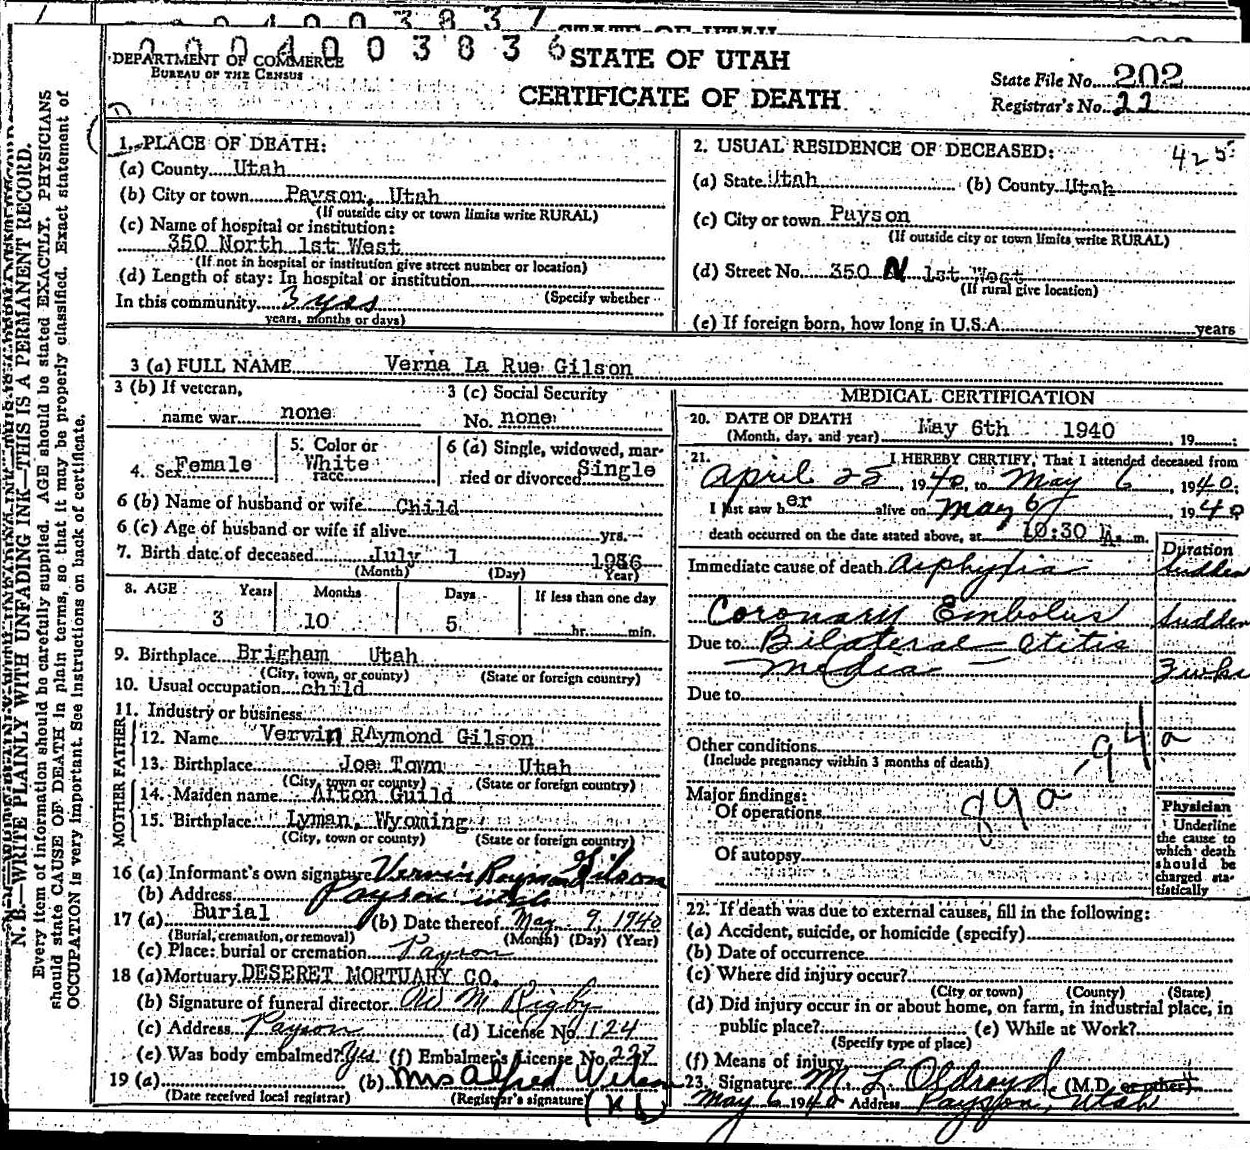 0004003837
STATE OF UTAH
0004003836
DEPARTMENT OF COMMERCE
BUREAU OF THE CENSUS
STATE OF UTAH
CERTIFICATE OF DEATH
State File No. 202
Registrar's No. 22
N. B.—WRITE PLAINLY WITH UNFADING INK—THIS IS A PERMANENT RECORD.
Every item of information should be carefully supplied. AGE should be stated EXACTLY. PHYSICIANS
should state CAUSE OF DEATH in plain terms, so that it may be properly classified. Exact statement of
OCCUPATION is very important. See instructions on back of certificate.
1. PLACE OF DEATH:
(a) County Utah
(b) City or town Payson, Utah
(If outside city or town limits write RURAL)
(c) Name of hospital or institution:
350 North 1st West
(If not in hospital or institution give street number or location)
(d) Length of stay: In hospital or institution
(Specify whether
In this community 3 yrs
years, months or days)
2. USUAL RESIDENCE OF DECEASED: 425
(a) State Utah (b) County Utah
(c) City or town Payson
(If outside city or town limits write RURAL)
(d) Street No. 350 N 1st West
(If rural give location)
(e) If foreign born, how long in U.S.A. years
3 (a) FULL NAME Verna La Rue Gilson
3 (b) If veteran,
name war none
3 (c) Social Security
No. none
4. Sex Female
5. Color or
race White
6 (a) Single, widowed, mar-
ried or divorced Single
6 (b) Name of husband or wife Child
6 (c) Age of husband or wife if alive yrs.
7. Birth date of deceased July 1 1936
(Month) (Day) Year)
8. AGE Years Months Days If less than one day
3 10 5 hr. min.
9. Birthplace Brigham Utah
(City, town, or county) (State or foreign country)
10. Usual occupation child
11. Industry or business
FATHER
12. Name Vervin RAymond Gilson
13. Birthplace Joe Town Utah
(City, town or county) (State or foreign country)
MOTHER
14. Maiden name Afton Guild
15. Birthplace Lyman, Wyoming
(City, town or county) (State or foreign country)
16 (a) Informant's own signature Vervin Raymond Gilson
(b) Address Payson Utah
17 (a) Burial (b) Date thereof May 9, 1940
(Burial, cremation, or removal) (Month) (Day) (Year)
(c) Place: burial or cremation Payson
18 (a) Mortuary DESERET MORTUARY CO.
(b) Signature of funeral director M Rigby
(c) Address Payson (d) License No. 124
(e) Was body embalmed? Yes (f) Embalmer's License No. 227
19 (a) (b) Mrs Alfred Wilson
(Date received local registrar) (Registrar's signature)
MEDICAL CERTIFICATION
20. DATE OF DEATH
(Month, day, and year) May 6th 1940, 19
21. I HEREBY CERTIFY, That I attended deceased from
April 25, 1940, to May 6, 1940;
I last saw her alive on May 6, 1940
death occurred on the date stated above, at 10:30 A. m.
Duration
Immediate cause of death Asphyxia Sudden
Coronary Embolus Sudden
Due to Bilateral Otitis
Media 2 wks
Due to
Other conditions
(Include pregnancy within 3 months of death)
94a
Major findings:
Of operations
89a
Of autopsy
Physician
Underline
the cause to
which death
should be
charged sta-
tistically
22. If death was due to external causes, fill in the following:
(a) Accident, suicide, or homicide (specify)
(b) Date of occurrence
(c) Where did injury occur?
(City or town) (County) (State)
(d) Did injury occur in or about home, on farm, in industrial place, in
public place? (e) While at Work?
(Specify type of place)
(f) Means of injury
23. Signature M. L. Oldroyd (M.D. or other)
May 6 1940 Address Payson, Utah